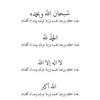 سبحان الله وبحمده
عدد خلقه ورضا نفسه وزنة عرشه ومداد كلماته
الحمد لله
عدد خلقه ورضا نفسه وزنة عرشه ومداد كلماته
لا إله إلا الله
عدد خلقه ورضا نفسه وزنة عرشه ومداد كلماته
الله أكبر
عدد خلقه ورضا نفسه وزنة عرشه ومداد كلماته